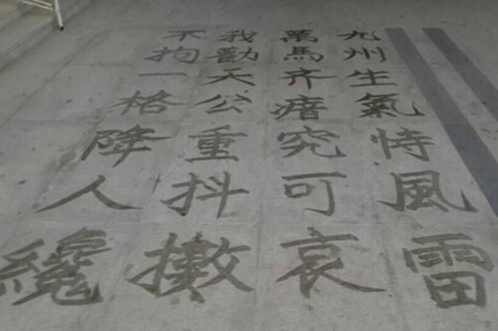 九州生氣恃風雷
萬馬齐瘖究可哀
我勸天公重抖擻
不拘一格降人纔